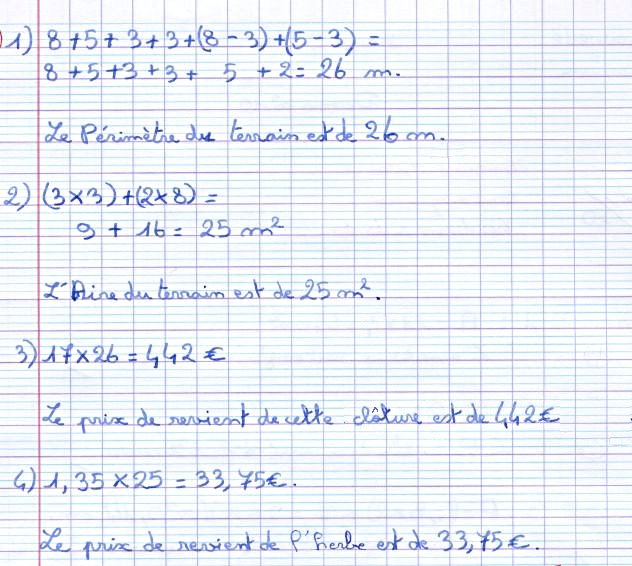 1) 8 + 5 + 3 + 3 + (8 - 3) + (5 - 3) =
8 + 5 + 3 + 3 + 5 + 2 = 26 m.
Le Périmètre du terrain est de 26 m.
2) (3 × 3) + (2 × 8) =
9 + 16 = 25 m²
L'Aire du terrain est de 25 m².
3) 17 × 26 = 442 €
Le prix de revient de cette clôture est de 442 €
4) 1,35 × 25 = 33,75 €.
Le prix de revient de l'herbe est de 33,75 €.